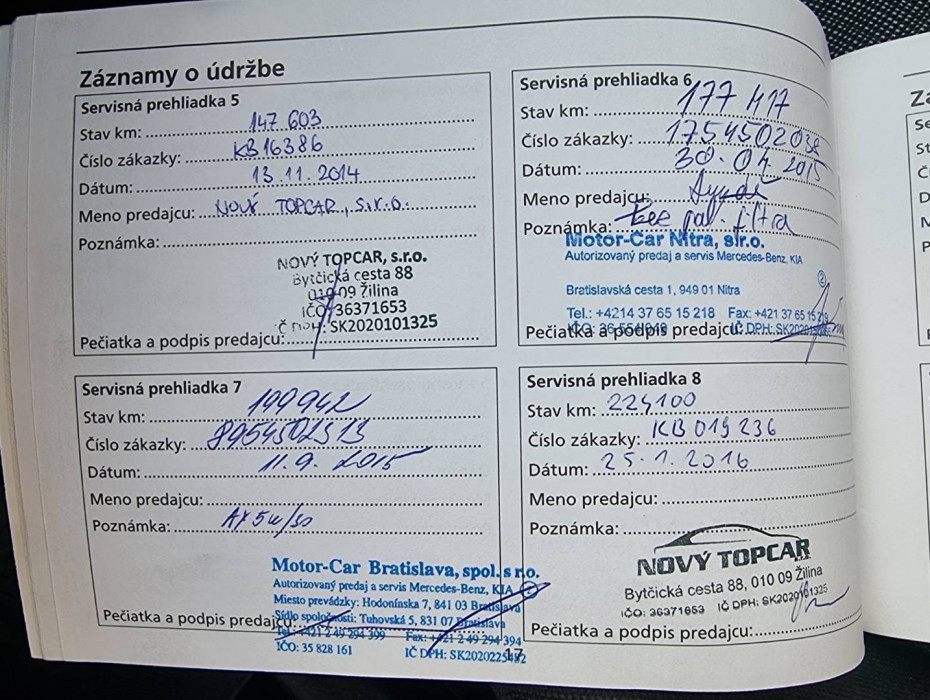 Záznamy o údržbe
Servisná prehliadka 5
Stav km: 147 603
Číslo zákazky: KB16386
Dátum: 13.11.2014
Meno predajcu: NOVÝ TOPCAR, s.r.o.
Poznámka:
NOVÝ TOPCAR, s.r.o.
Bytčická cesta 88
010 09 Žilina
IČO: 36371653
SK2020101325
Pečiatka a podpis predajcu:
Servisná prehliadka 6
Stav km: 177 417
Číslo zákazky: 1754502038
Dátum: 30.04.2015
Meno predajcu:
Poznámka: pal. filtra
Motor-Car Nitra, s.r.o.
Autorizovaný predaj a servis Mercedes-Benz, KIA
2
Bratislavská cesta 1, 949 01 Nitra
Tel.: +4214 37 65 15 218 Fax: +421 37 65 15 219
IČO: IČ DPH:
Pečiatka a podpis predajcu:
Servisná prehliadka 7
Stav km: 199942
Číslo zákazky: 8954502513
Dátum: 11.9.2015
Meno predajcu:
Poznámka: 5w/30
Motor-Car Bratislava, spol. s r.o.
Autorizovaný predaj a servis Mercedes-Benz, KIA
Miesto prevádzky: Hodonínska 7, 841 03 Bratislava
Sídlo spoločnosti: Tuhovská 5, 831 07 Bratislava
Pečiatka a podpis predajcu:
Tel.: +421 2 49 294 399 Fax: +421 2 49 294 394
IČO: 35 828 161 IČ DPH: SK2020225482
Servisná prehliadka 8
Stav km: 224100
Číslo zákazky: KB019236
Dátum: 25.1.2016
Meno predajcu:
Poznámka:
NOVÝ TOPCAR
Bytčická cesta 88, 010 09 Žilina
IČO: 36371653 IČ DPH: SK2020101325
Pečiatka a podpis predajcu:
17